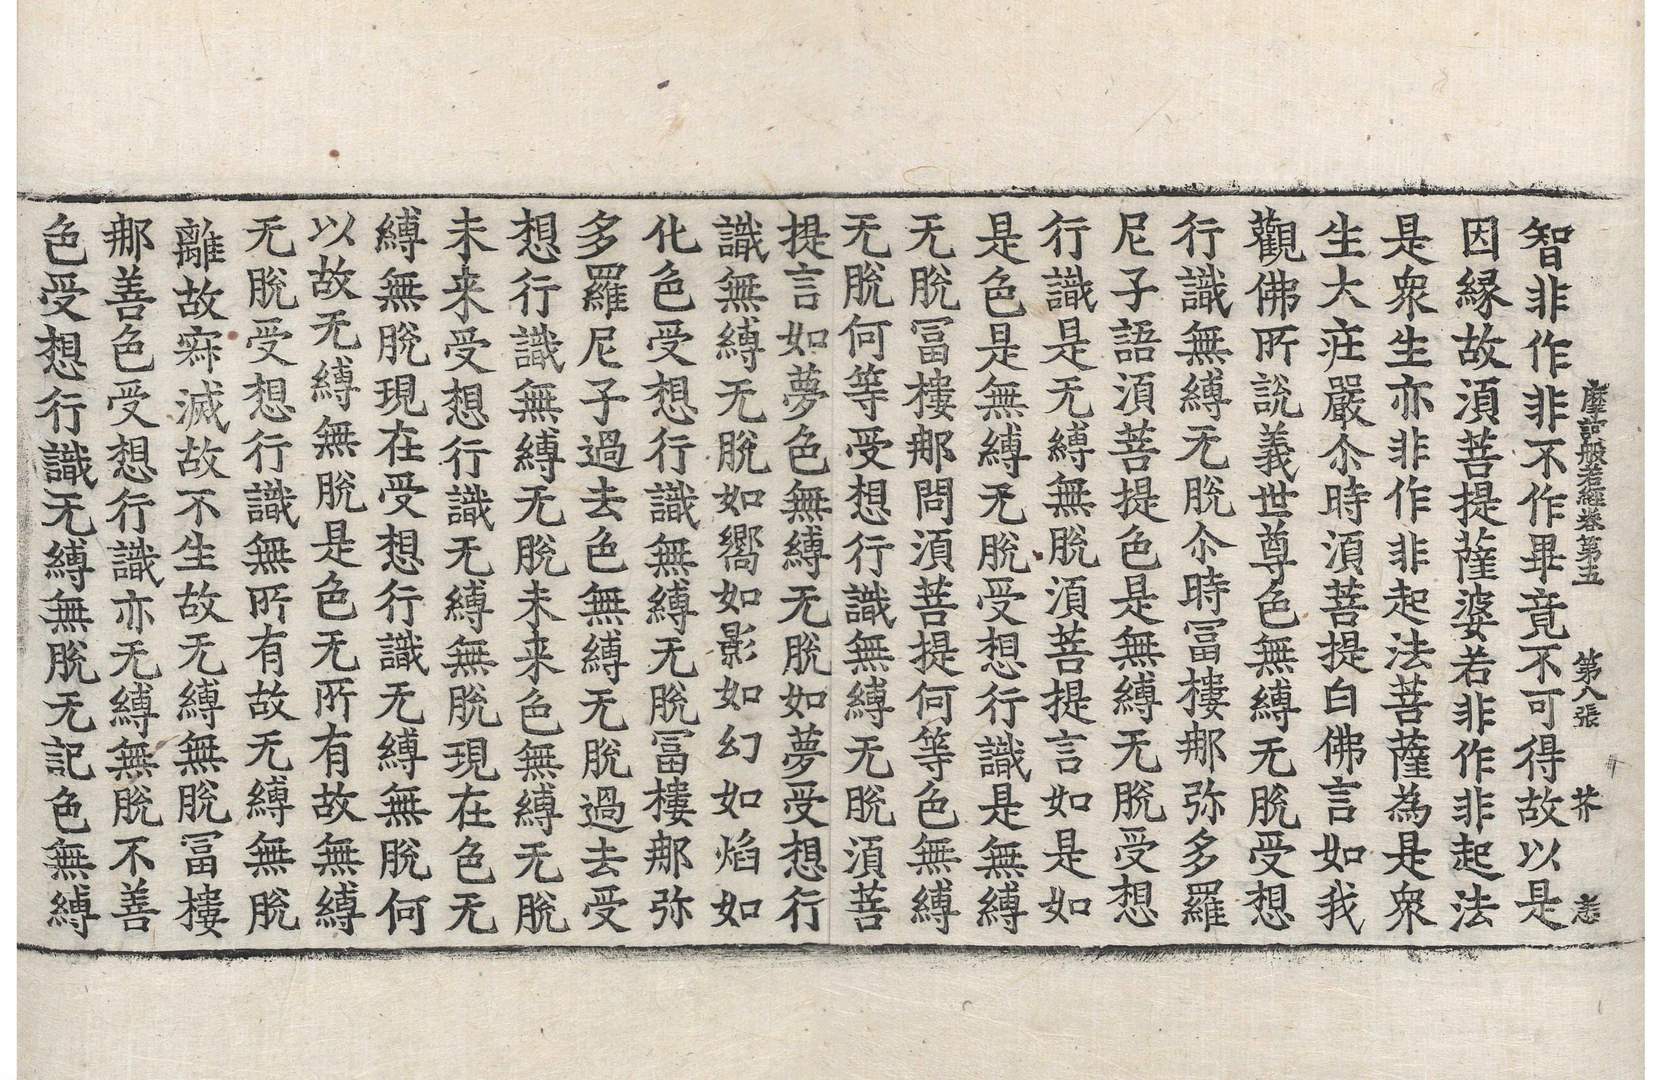 摩訶般若經卷第五　第八張　芥
智非作非不作畢竟不可得故以是
因縁故湏菩提薩婆若非作非起法
是衆生亦非作非起法菩薩為是衆
生大莊嚴尒時湏菩提白佛言如我
觀佛所說義世尊色無縛无脫受想
行識無縛无脫尒時冨樓那弥多羅
尼子語湏菩提色是無縛无脫受想
行識是无縛無脫湏菩提言如是如
是色是無縛无脫受想行識是無縛
无脫冨樓那問湏菩提何等色無縛
无脫何等受想行識無縛无脫湏菩
提言如夢色無縛无脫如夢受想行
識無縛无脫如嚮如影如幻如焰如
化色受想行識無縛无脫冨樓那弥
多羅尼子過去色無縛无脫過去受
想行識無縛无脫未来色無縛无脫
未来受想行識无縛無脫現在色无
縛無脫現在受想行識无縛無脫何
以故无縛無脫是色无所有故無縛
无脫受想行識無所有故无縛無脫
離故寂滅故不生故无縛無脫冨樓
那善色受想行識亦无縛無脫不善
色受想行識无縛無脫无記色無縛